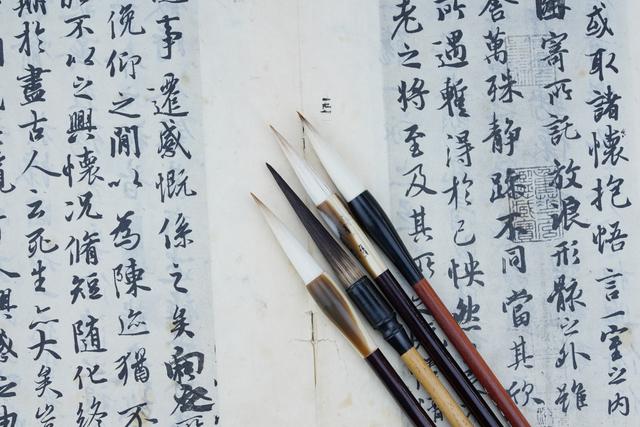 或取諸懷抱悟言一室之内
因寄所託放浪形骸之外雖
舍萬殊靜躁不同當其欣
所遇蹔得於己怏然
老之將至及其所
事遷感慨係之矣向
俛仰之閒以為陳迹猶不
不以之興懷況脩短隨化終
期於盡古人云死生亦大矣豈
覽
人興感之由